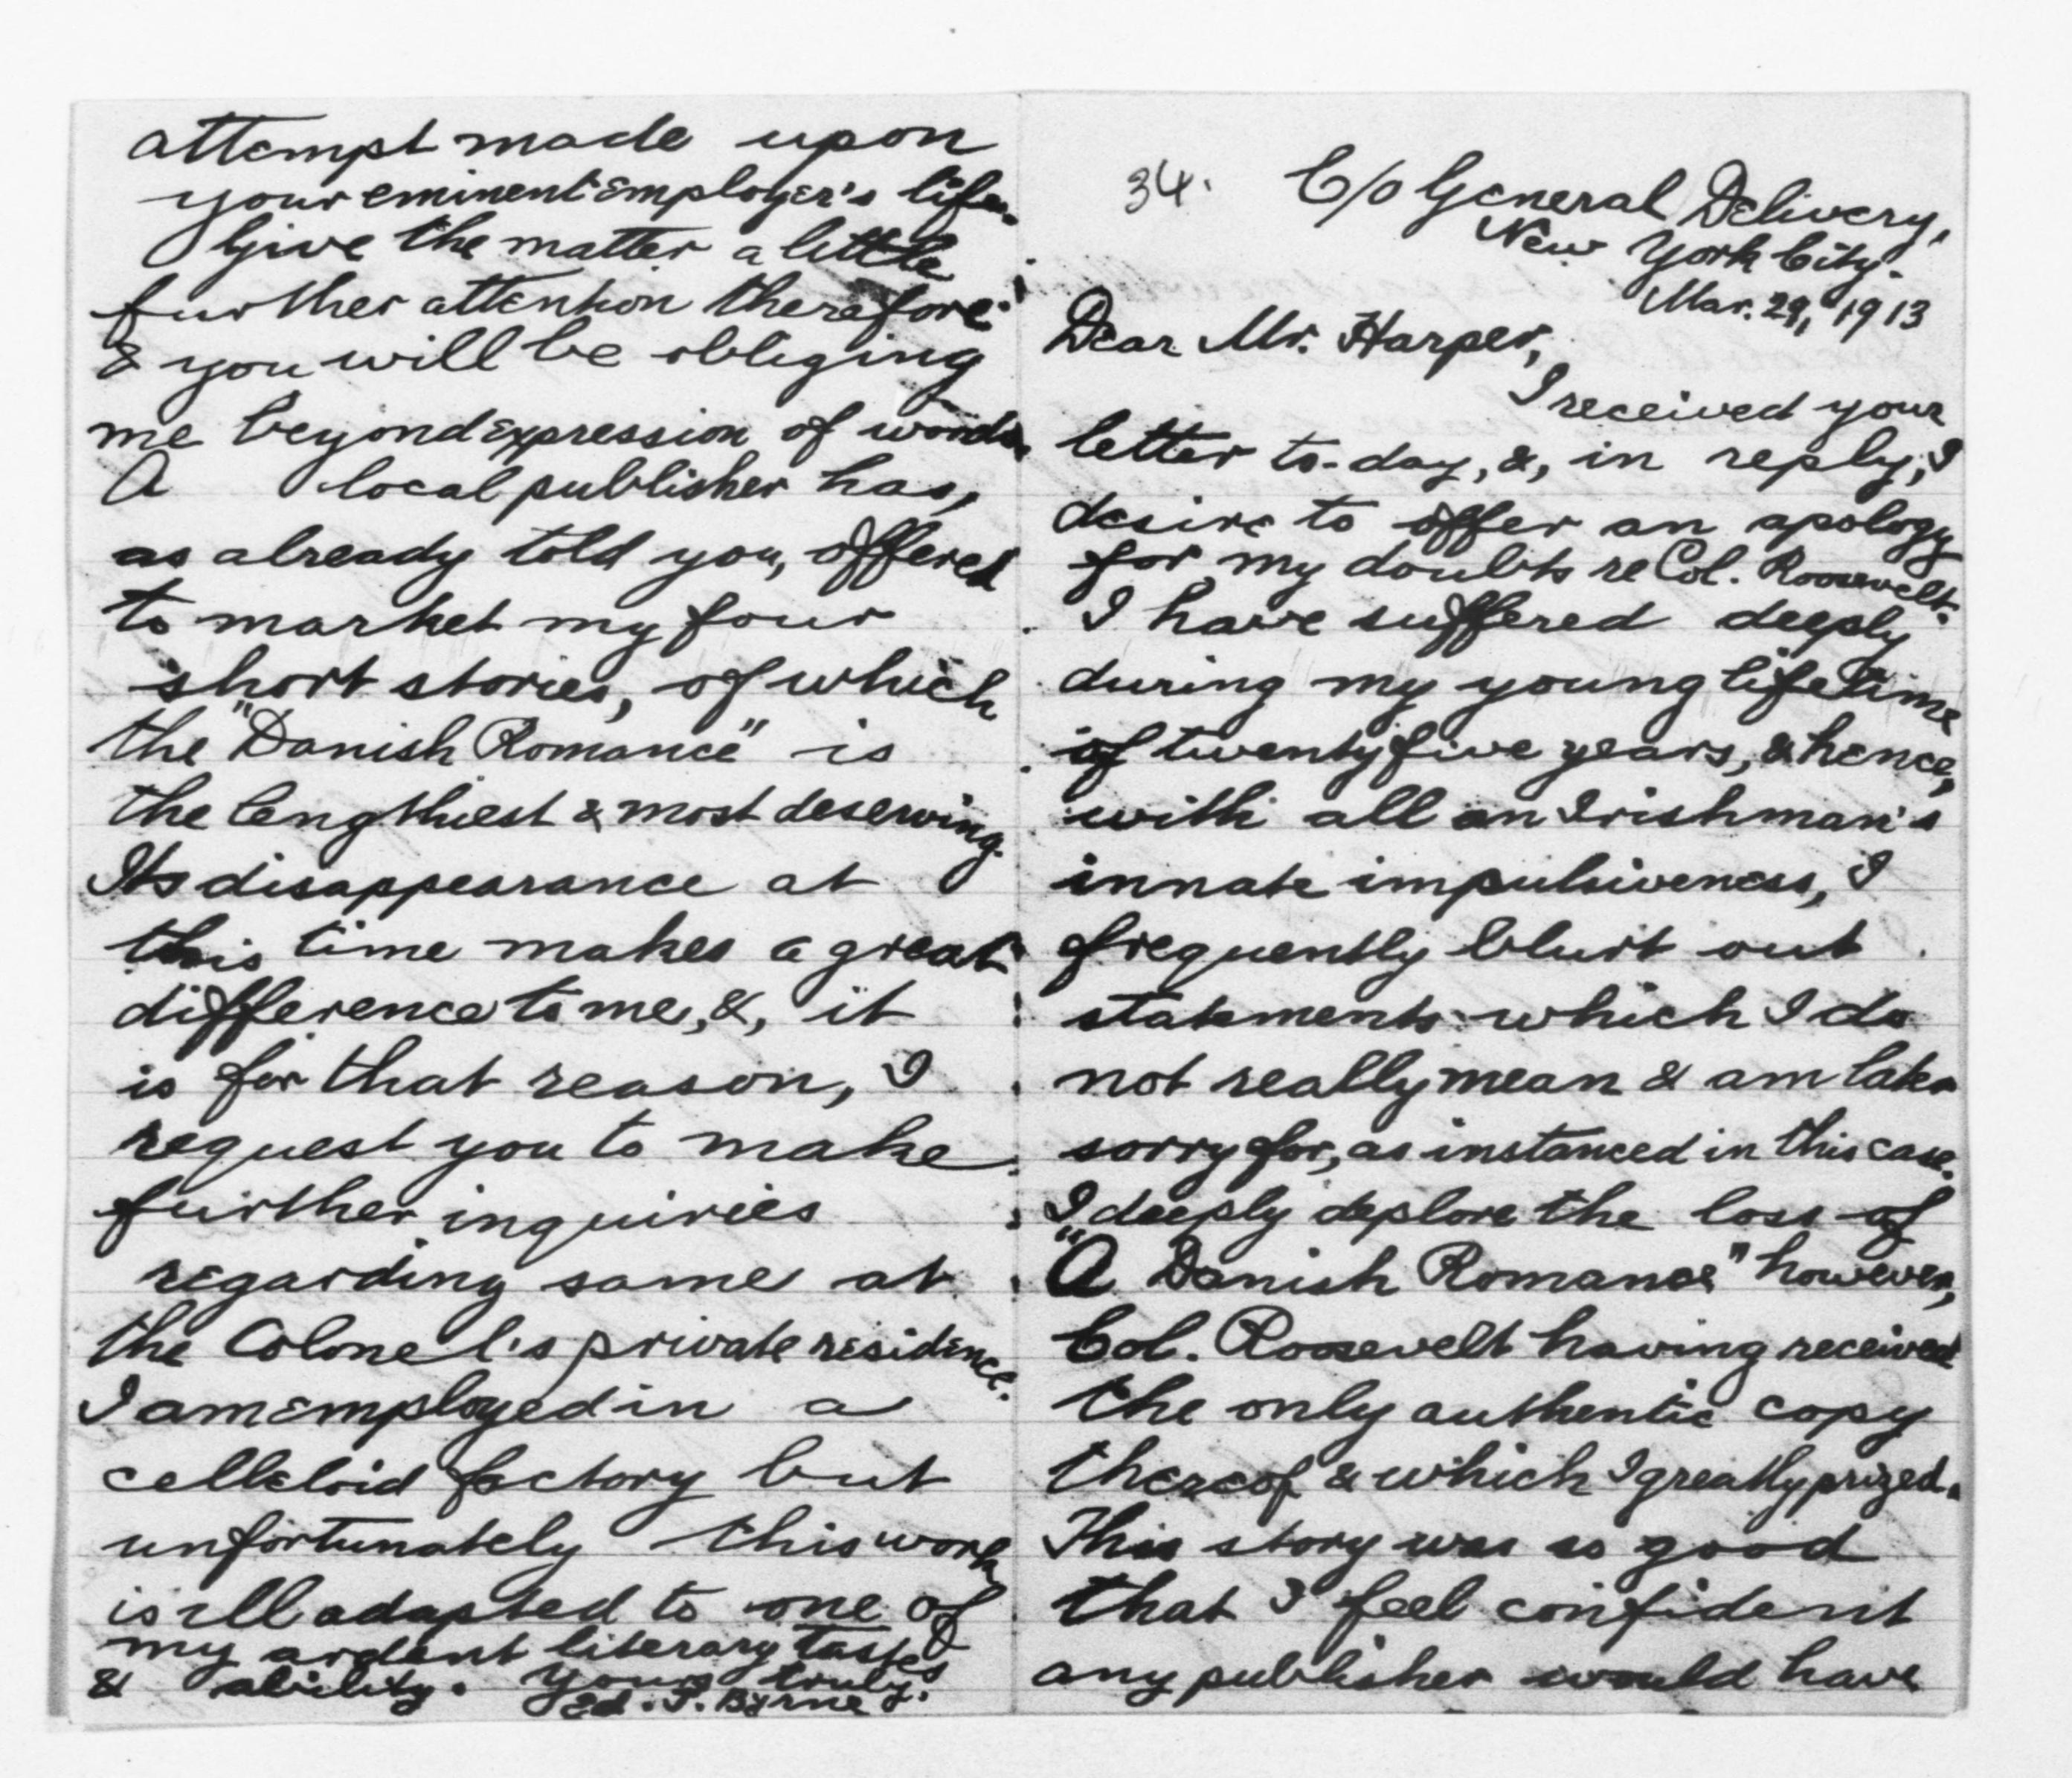 34. C/o General Delivery,
New York City.
Mar. 29, 1913
Dear Mr. Harper,
I received your
letter to-day, &, in reply, I
desire to offer an apology
for my doubts re Col. Roosevelt.
I have suffered deeply
during my young lifetime
of twentyfive years, & hence,
with all an Irishman's
innate impulsiveness, I
frequently blurt out
statements which I do
not really mean & am later
sorry for, as instanced in this case.
I deeply deplore the loss of
"A Danish Romance" however,
Col. Roosevelt having received
the only authentic copy
thereof & which I greatly prized.
This story was so good
that I feel confident
any publisher would have
attempt made upon
your eminent employer's life.
Give the matter a little
further attention therefore
& you will be obliging
me beyond expression of words.
A local publisher has,
as already told you, offered
to market my four
short stories, of which
the "Danish Romance" is
the lengthiest & most deserving.
Its disappearance at
this time makes a great
difference to me, &, it
is for that reason, I
request you to make
further inquiries
regarding same at
the Colonel's private residence.
I am employed in a
celleloid factory but
unfortunately this work
is ill adapted to one of
my ardent literary tastes
& ability. Yours truly,
Ed. P. Byrne